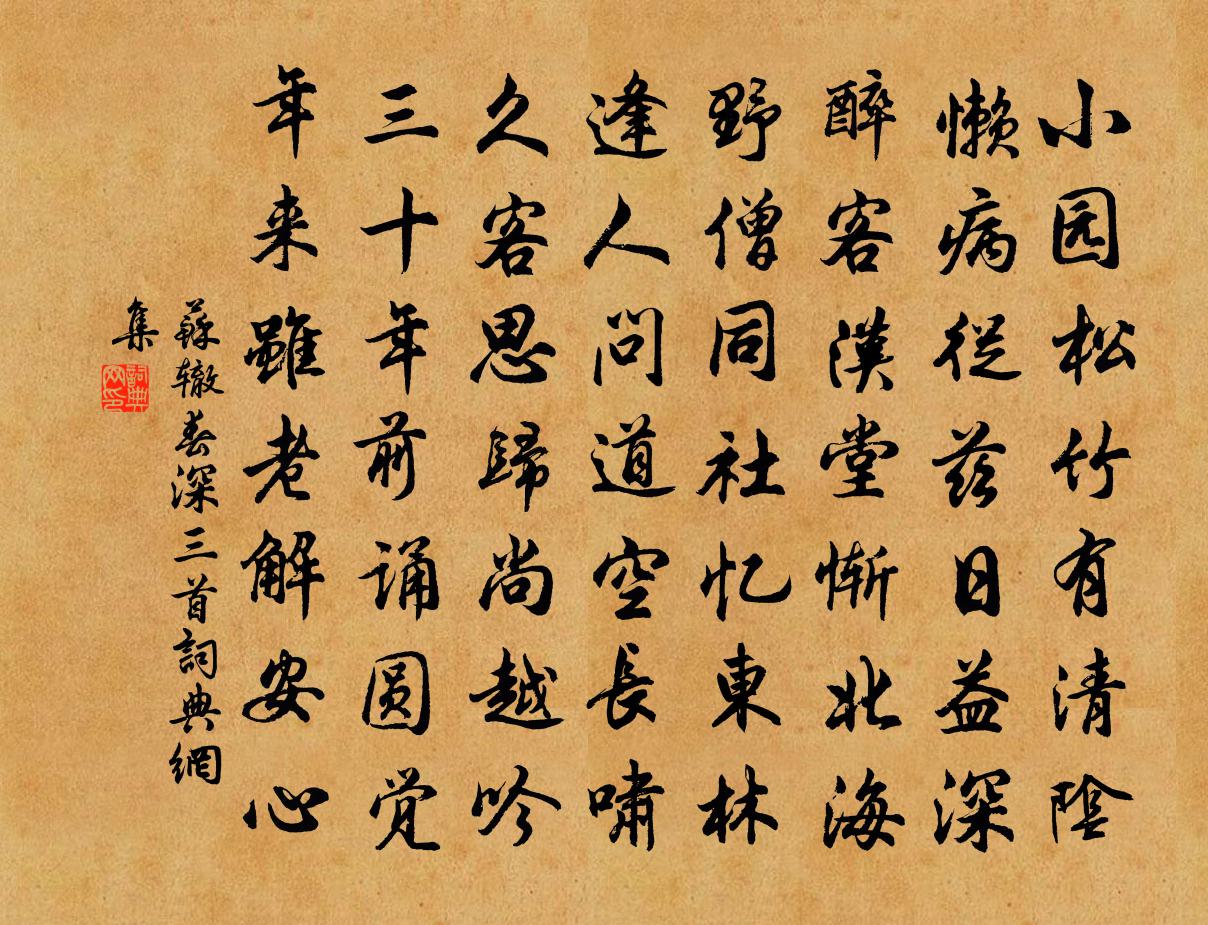 小园松竹有清陰
懒病從兹日益深
醉客漢堂惭北海
野僧同社忆東林
逢人問道空長嘯
久客思歸尚越吟
三十年前诵圆觉
年来雖老解安心
蘇辙春深三首詞典網
集
詞典
网印